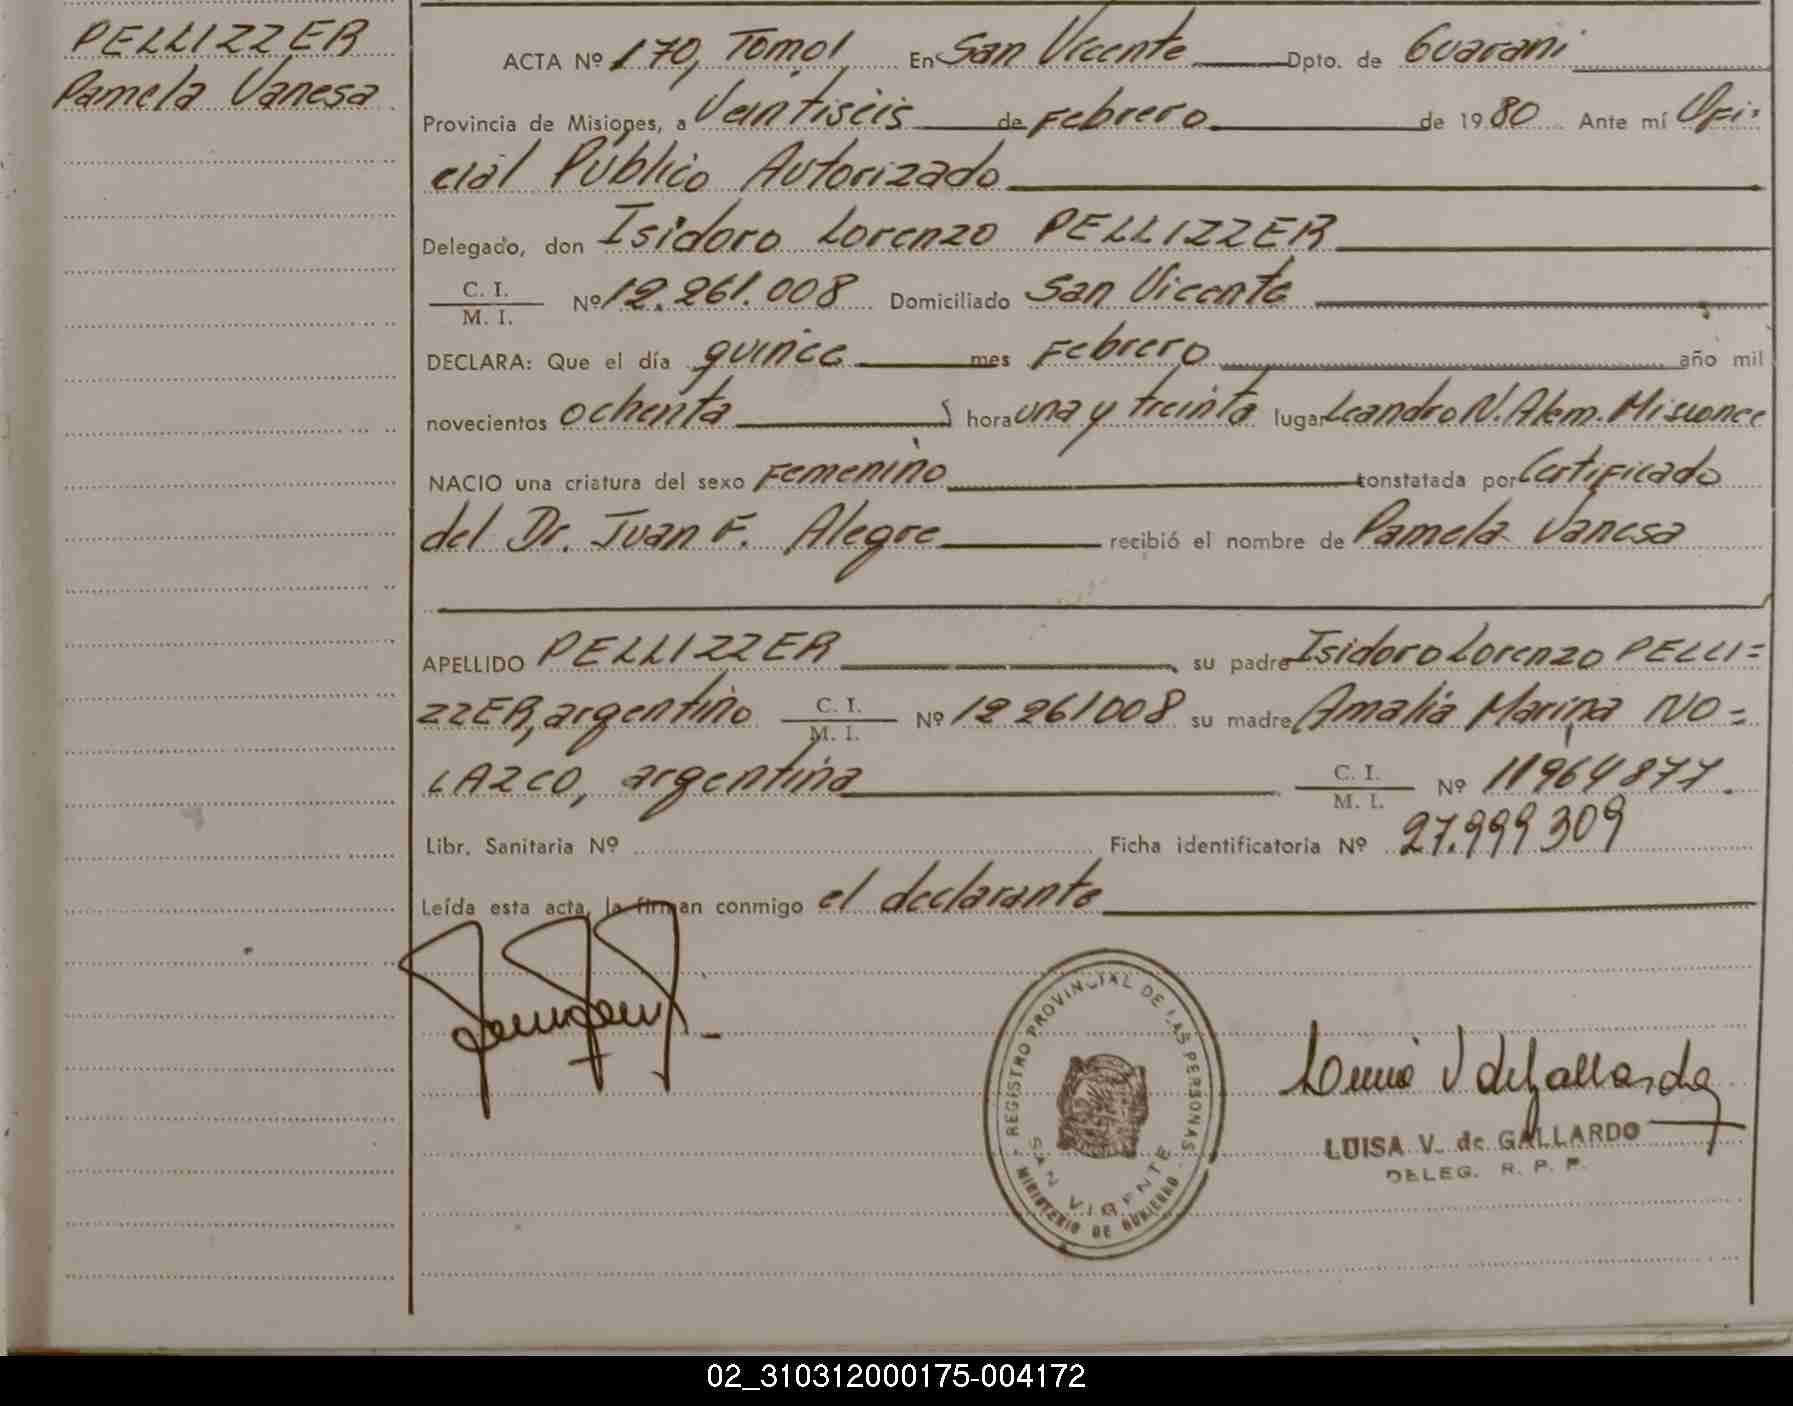 PELLIZZER
Pamela Vanesa
ACTA Nº 170, Tomo I En San Vicente Dpto. de Guaraní
Provincia de Misiones, a Veintiseis de Febrero de 1980 Ante mí Ofi-
cial Público Autorizado
Delegado, don Isidoro Lorenzo PELLIZZER
C. I.
M. I. Nº 12.261.008 Domiciliado San Vicente
DECLARA: Que el día quince mes Febrero año mil
novecientos ochenta hora una y treinta lugar Leandro N. Alem. Misiones
NACIO una criatura del sexo Femenino constatada por Certificado
del Dr. Juan F. Alegre recibió el nombre de Pamela Vanesa
APELLIDO PELLIZZER, su padre Isidoro Lorenzo PELLI=
ZZER, argentino C. I. M. I. Nº 12261008 su madre Amalia Marina NO=
LAZCO, argentina C. I. M. I. Nº 11964877.
Libr. Sanitaria Nº Ficha identificatoria Nº 27.999309
Leída esta acta, la firman conmigo el declarante
REGISTRO PROVINCIAL DE LAS PERSONAS
SAN VICENTE
MINISTERIO DE GOBIERNO
Luisa V de Gallardo
LUISA V. de GALLARDO
DELEG. R. P. P.
02_310312000175-004172